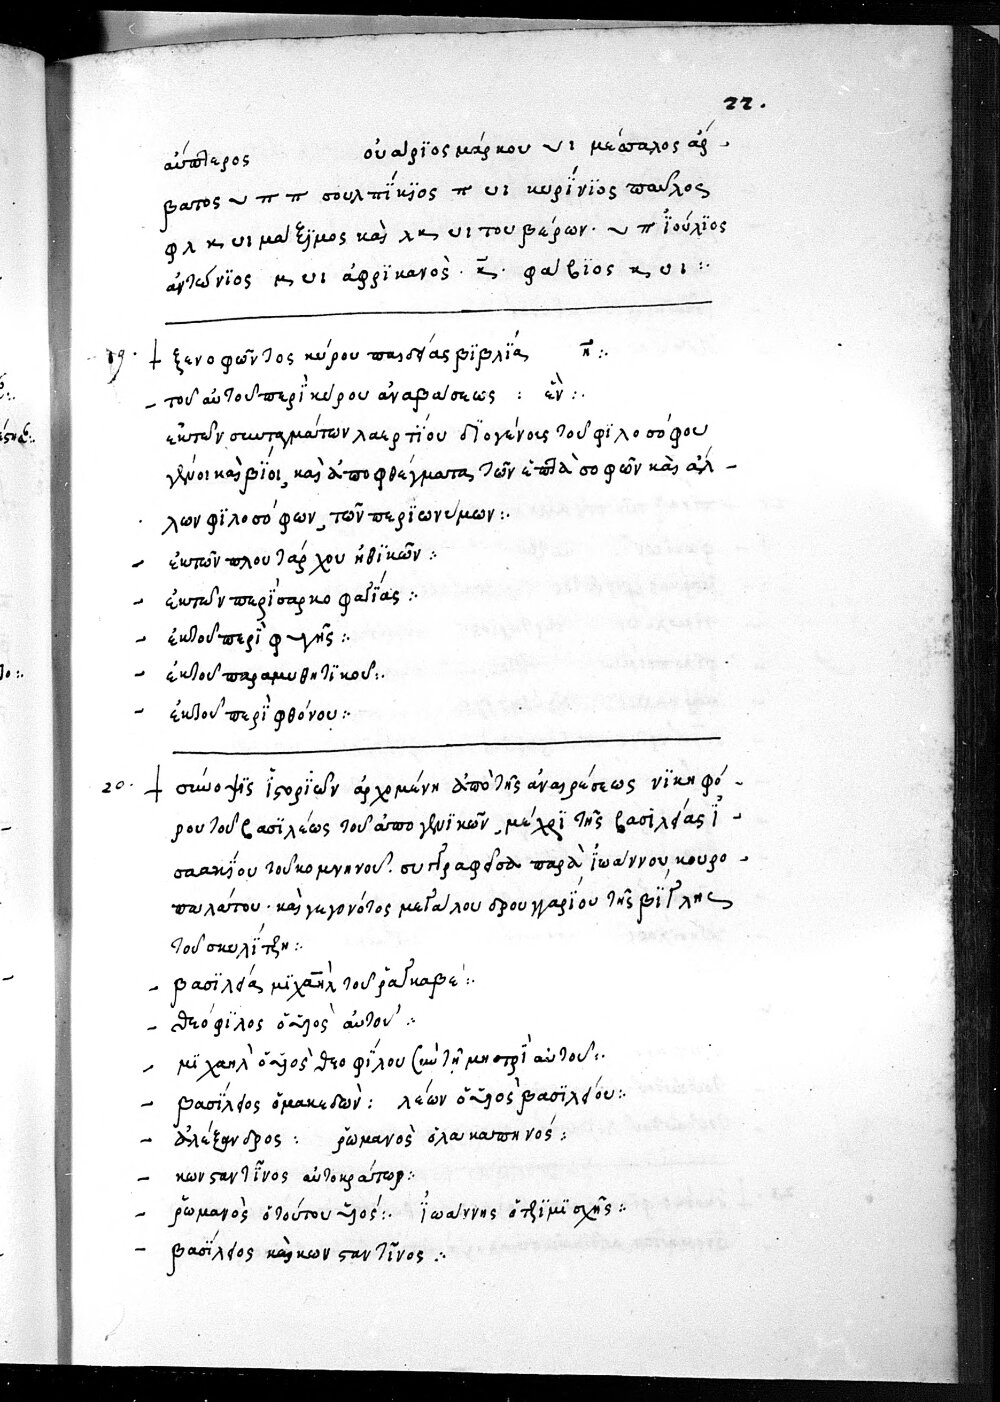 22.
αὔπτερος οὐάρϊος μάρκου υι μέσαλος ἀρ-
βατος ~ π π σουλπίκϊος π υι κυρίνϊος παῦλος
φλ κ υι μάξϊμος καὶ λκ υι τουβέρων. ~ π ἰούλϊος
ἀντώνϊος κ υι ἀφρϊκανὸς. κ. φάβϊος κ υι :
19. + ξενοφῶντος κύρου παιδείας βϊβλία η :.
- τοῦ αὐτοῦ περὶ κύρου ἀναβάσεως : ἓν :.
ἐκ τῶν συνταγμάτων λαερτίου διογένους τοῦ φϊλοσόφου
γένοι καὶ βίοι, καὶ ἀποφθέγματα, τῶν ἑπτὰ σοφῶν καὶ ἀλ-
λων φϊλοσόφων, τῶν περϊωνύμων :.
- ἐκ τῶν πλουτάρχου ἠθϊκῶν :
- ἐκ τῶν περὶ σαρκοφαγίας :.
- ἐκ τοῦ περὶ φυγῆς :.
- ἐκ τοῦ παραμυθητϊκοῦ :.
- ἐκ τοῦ περὶ φθόνου :.
20. + σύνοψϊς ἱστορϊῶν ἀρχομένη ἀπὸ τῆς ἀναιρέσεως νϊκηφό-
ρου τοῦ βασϊλέως τοῦ ἀπὸ γενϊκῶν, μέχρϊ τῆς βασϊλείας ἰ-
σαακίου τοῦ κομνηνοῦ. συγγραφεῖσα παρὰ ἰωάννου κουρο-
παλάτου. καὶ γεγονότος μεγάλου δρουγγαρίου τῆς βίγλης
τοῦ σκυλίτζη :.
- βασϊλεία, μϊχαὴλ τοῦ ῥαγκαβέ :.
- θεόφϊλος ὁ υἱὸς αὐτοῦ :.
- μϊχαὴλ ὁ υἱὸς θεοφίλου σὺν τῆ μητρὶ αὐτοῦ :.
- βασίλειος ὁ μακεδὼν : λέων ὁ υἱὸς βασϊλείου :.
- ἀλέξανδρος : ῥωμανὸς ὁ λακαπηνός :
- κωνσταντῖνος αὐτοκράτωρ :
- ῥωμανὸς ὁ τούτου υἱός :. ἰωάννης ὁ τζϊμϊσχῆς :
- βασίλειος καὶ κωνσταντῖνος :.